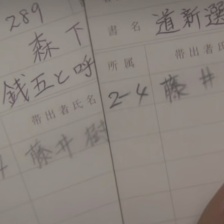 289
森下
銭五と呼
帯出者氏名
藤井
書名 道新選
所属 帯出者
2-4 藤井